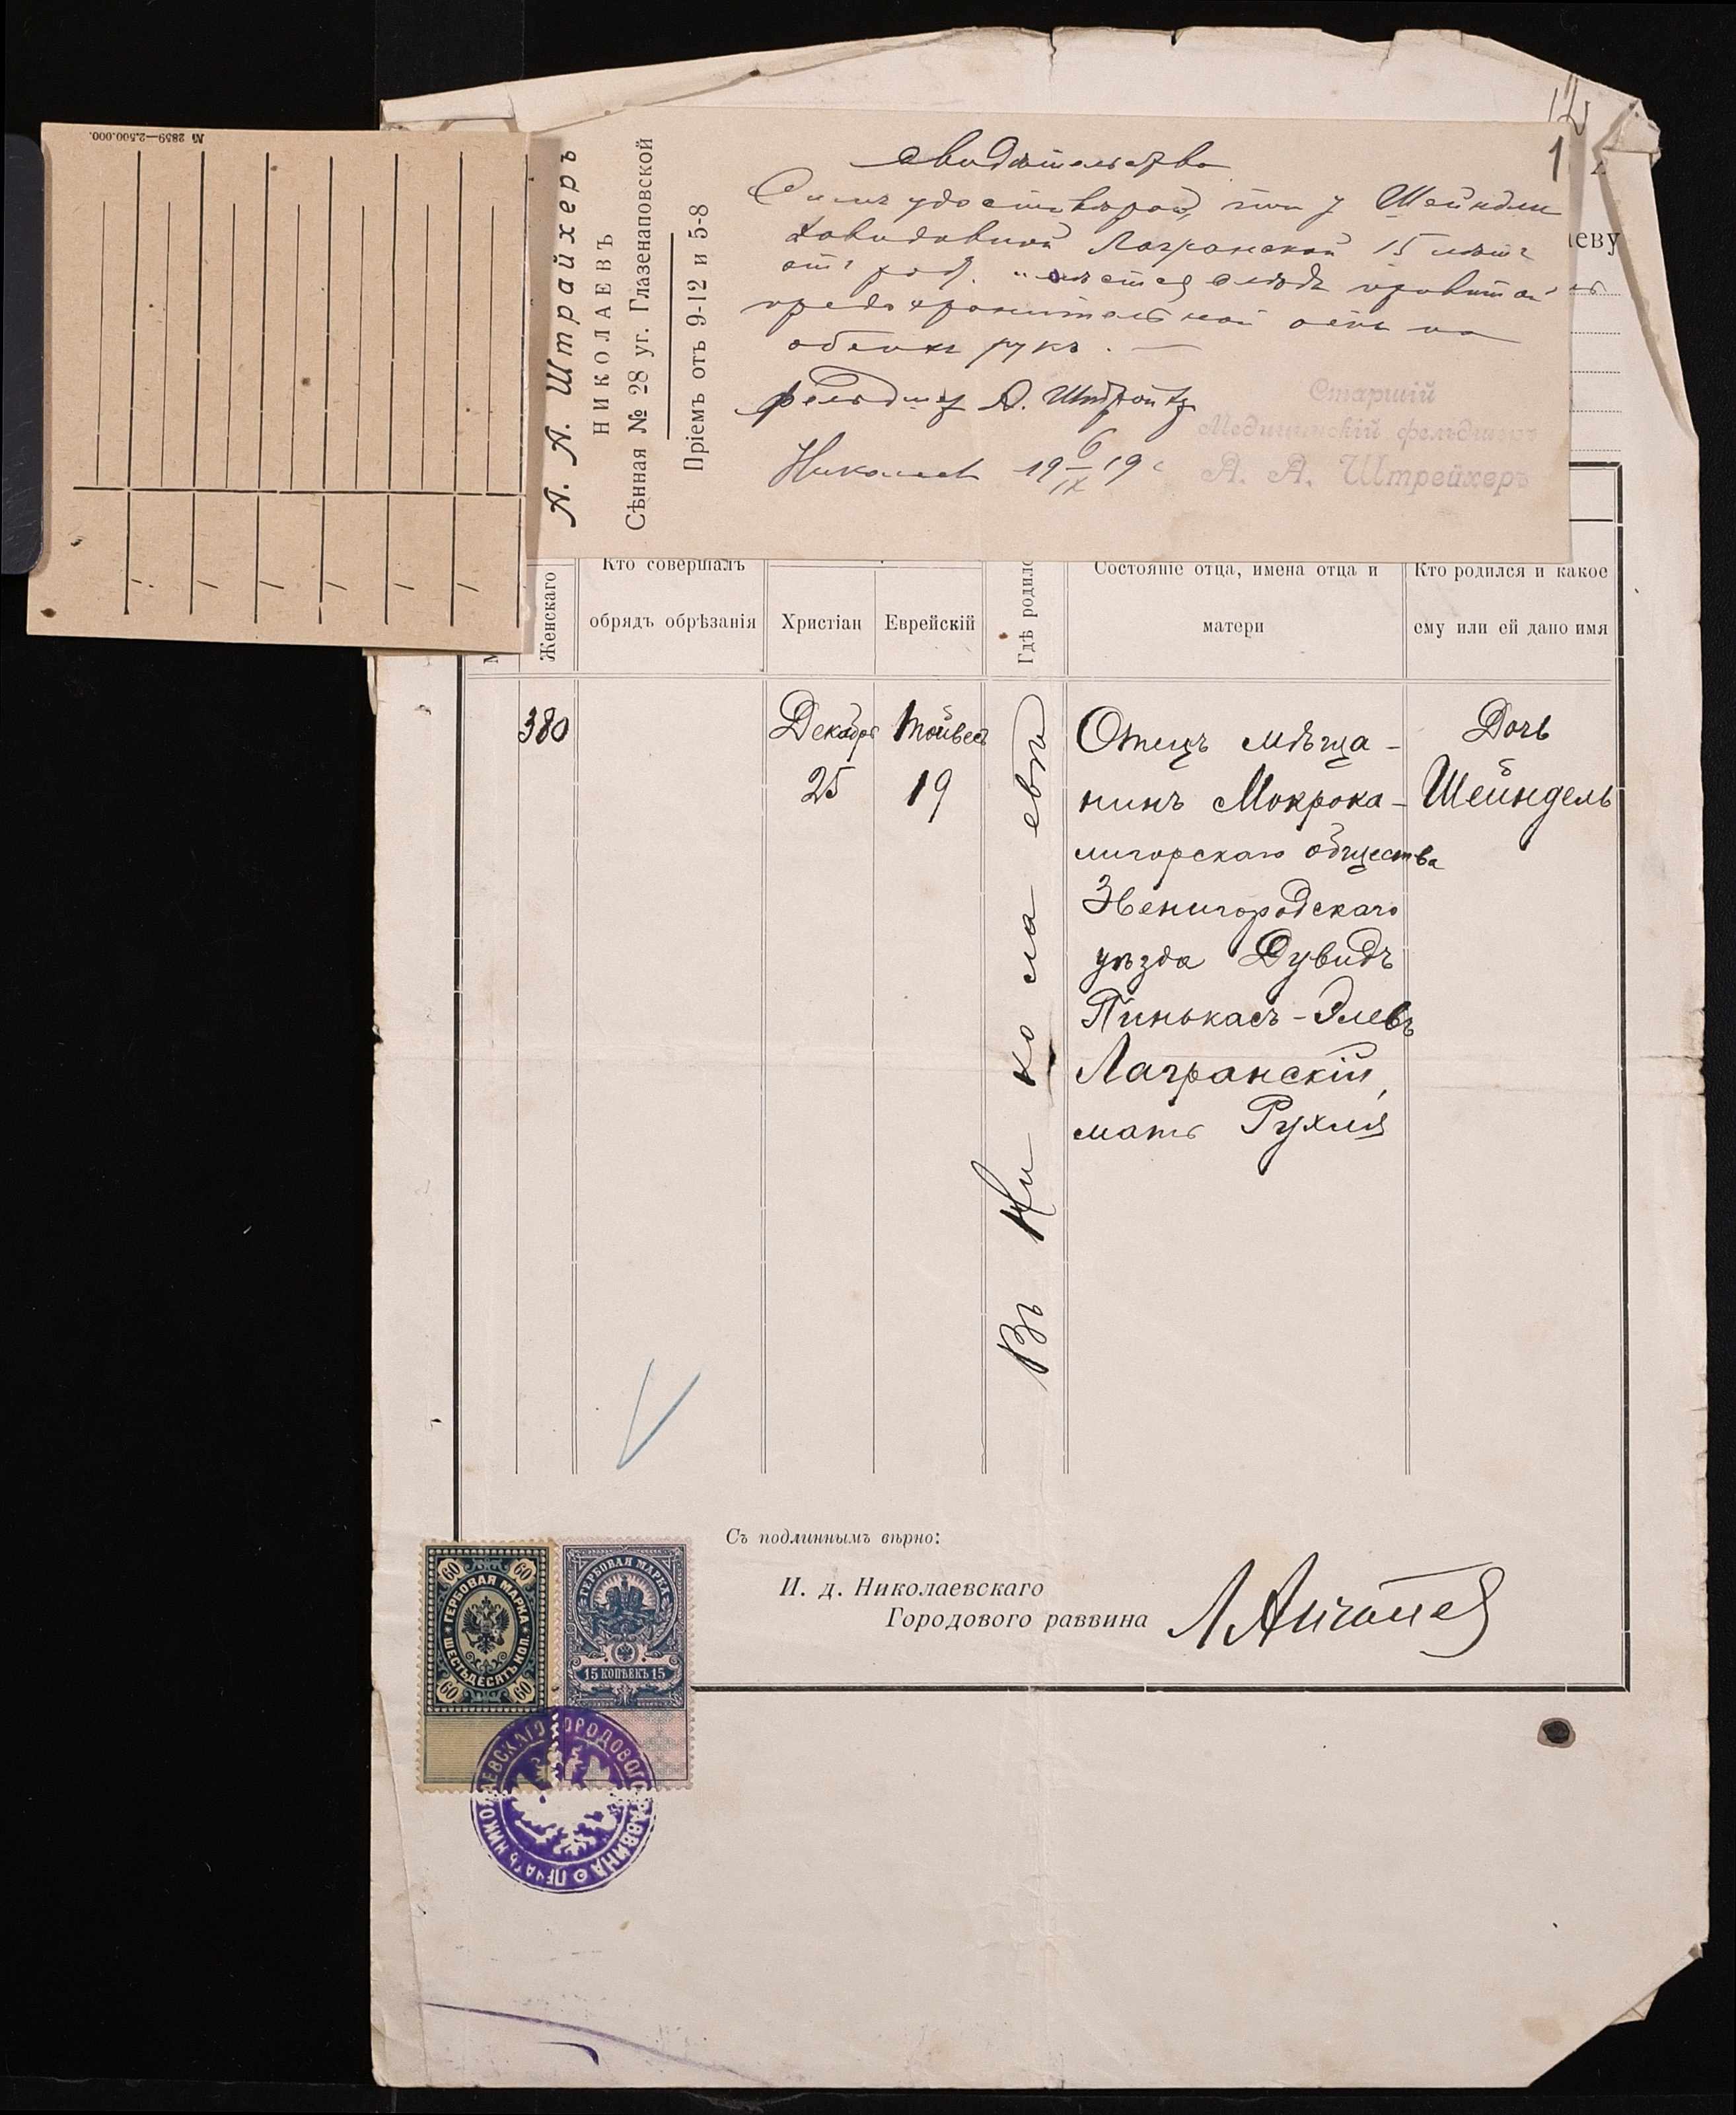 № 2859—2.500.000.
А. А. Штрайхеръ
НИКОЛАЕВЪ
Сѣнная № 28 уг. Глазенаповской
Пріемъ отъ 9-12 и 5-8
Свидѣтельство
Симъ удостовѣряю, что у Шейндли
Давидовной Лагранской 15 лѣтъ
отъ род. имѣется слѣды привитой
предохранительной оспы на
обеихъ рукъ. —
фельдшер А.
Николаев 19 6/IX 19
Старшій
Медицинскій фельдшеръ
А. А. Штрейхеръ
1
еву
Женскаго
Кто совершалъ
обрядъ обрѣзанія
Христіан
Еврейскій
Гдѣ родилс
Состояніе отца, имена отца и
матери
Кто родился и какое
ему или ей дано имя
380
Декабря
25
Тейвес
19
Въ Николаевѣ
Отецъ мѣща-
нинъ Мокрока-
лигорскаго общества
Звенигородскаго
уѣзда Дувидъ
Пинькасъ-Элевъ
Лагранскій,
мать Рухля
Дочь
Шейндель
Съ подлиннымъ вѣрно:
И. д. Николаевскаго
Городового раввина
60 60
ГЕРБОВАЯ МАРКА
ШЕСТЬДЕСЯТЬ КОП.
60 60
ГЕРБОВАЯ МАРКА
15 КОПѢЕКЪ 15
ПЕЧАТЬ НИКОЛАЕВСКАГО ГОРОДОВОГО РАВВИНА